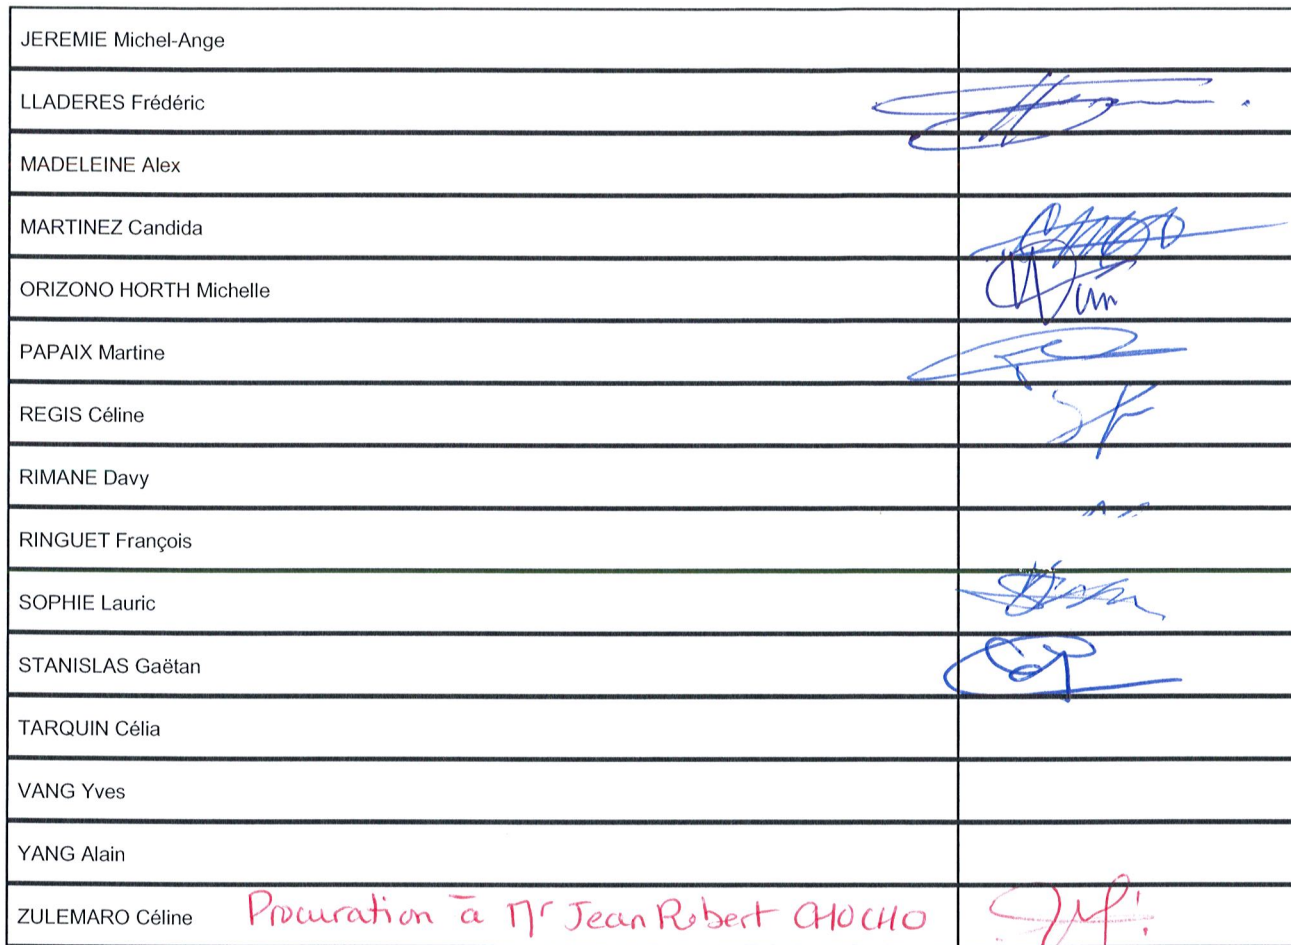 JEREMIE Michel-Ange
LLADERES Frédéric
MADELEINE Alex
MARTINEZ Candida
ORIZONO HORTH Michelle
PAPAIX Martine
REGIS Céline
RIMANE Davy
RINGUET François
SOPHIE Lauric
STANISLAS Gaëtan
TARQUIN Célia
VANG Yves
YANG Alain
ZULEMARO Céline Procuration à Mr Jean Robert CHOCHO